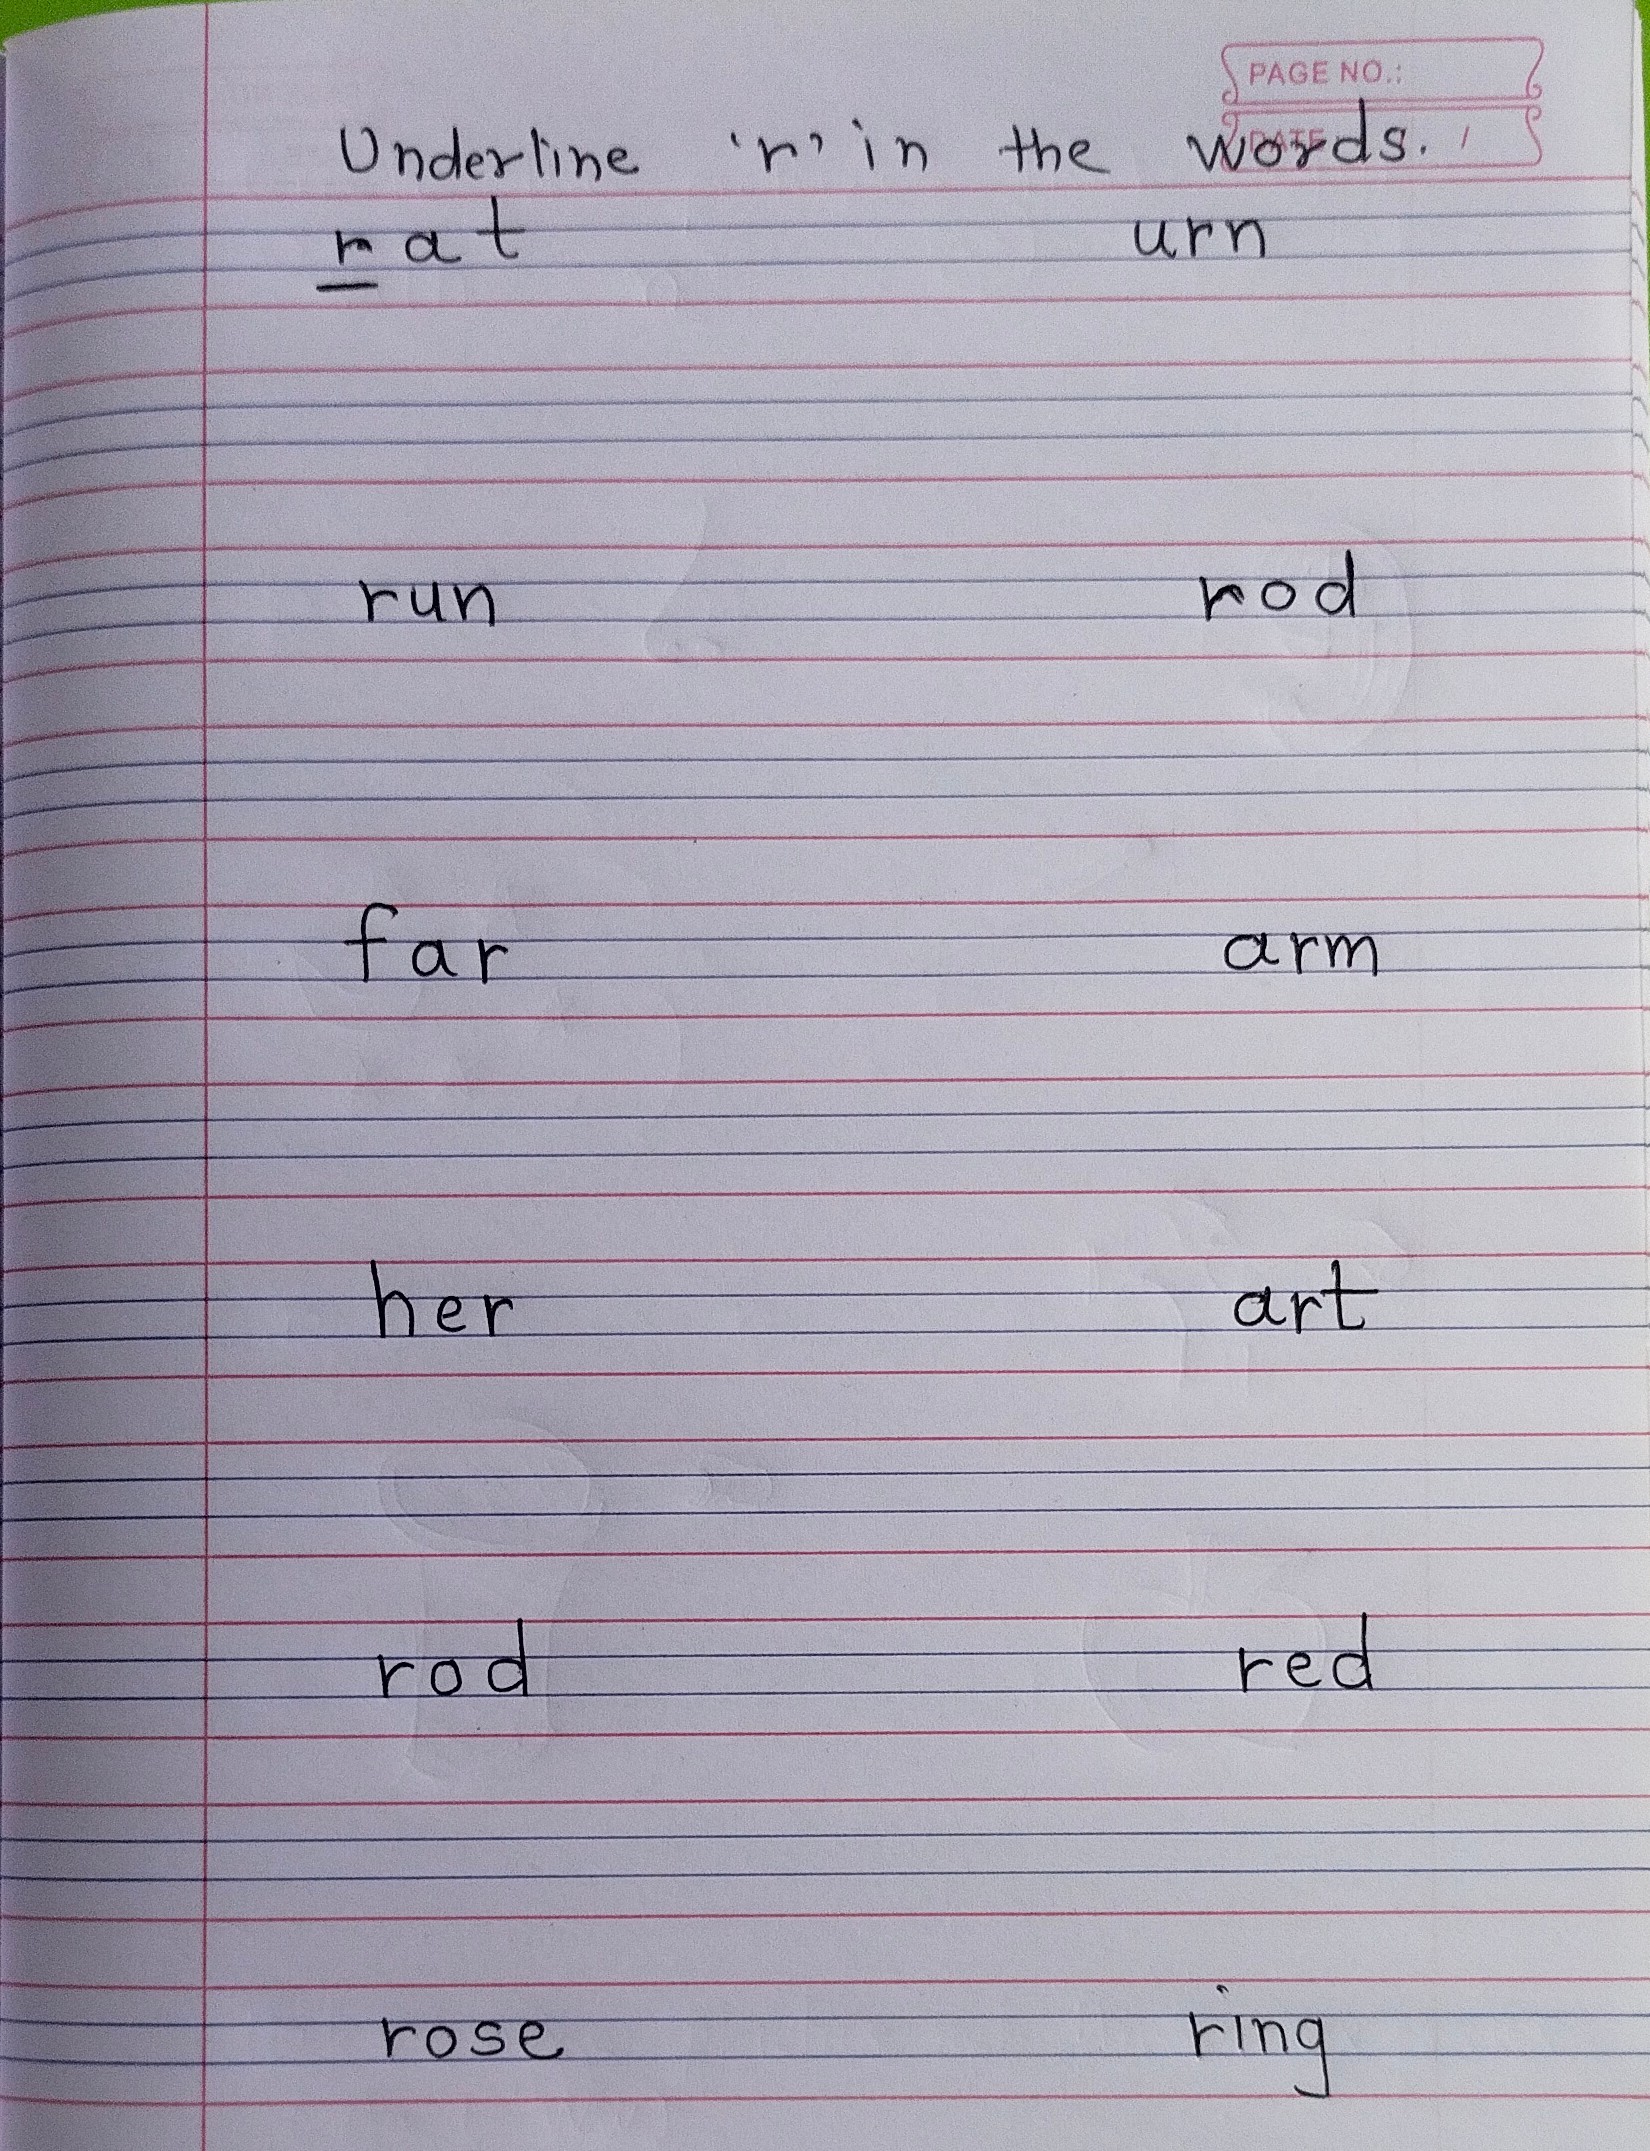 PAGE NO.:
DATE / 
Underline 'r' in the words.
rat urn
run rod
far arm
her art
rod red
rose ring